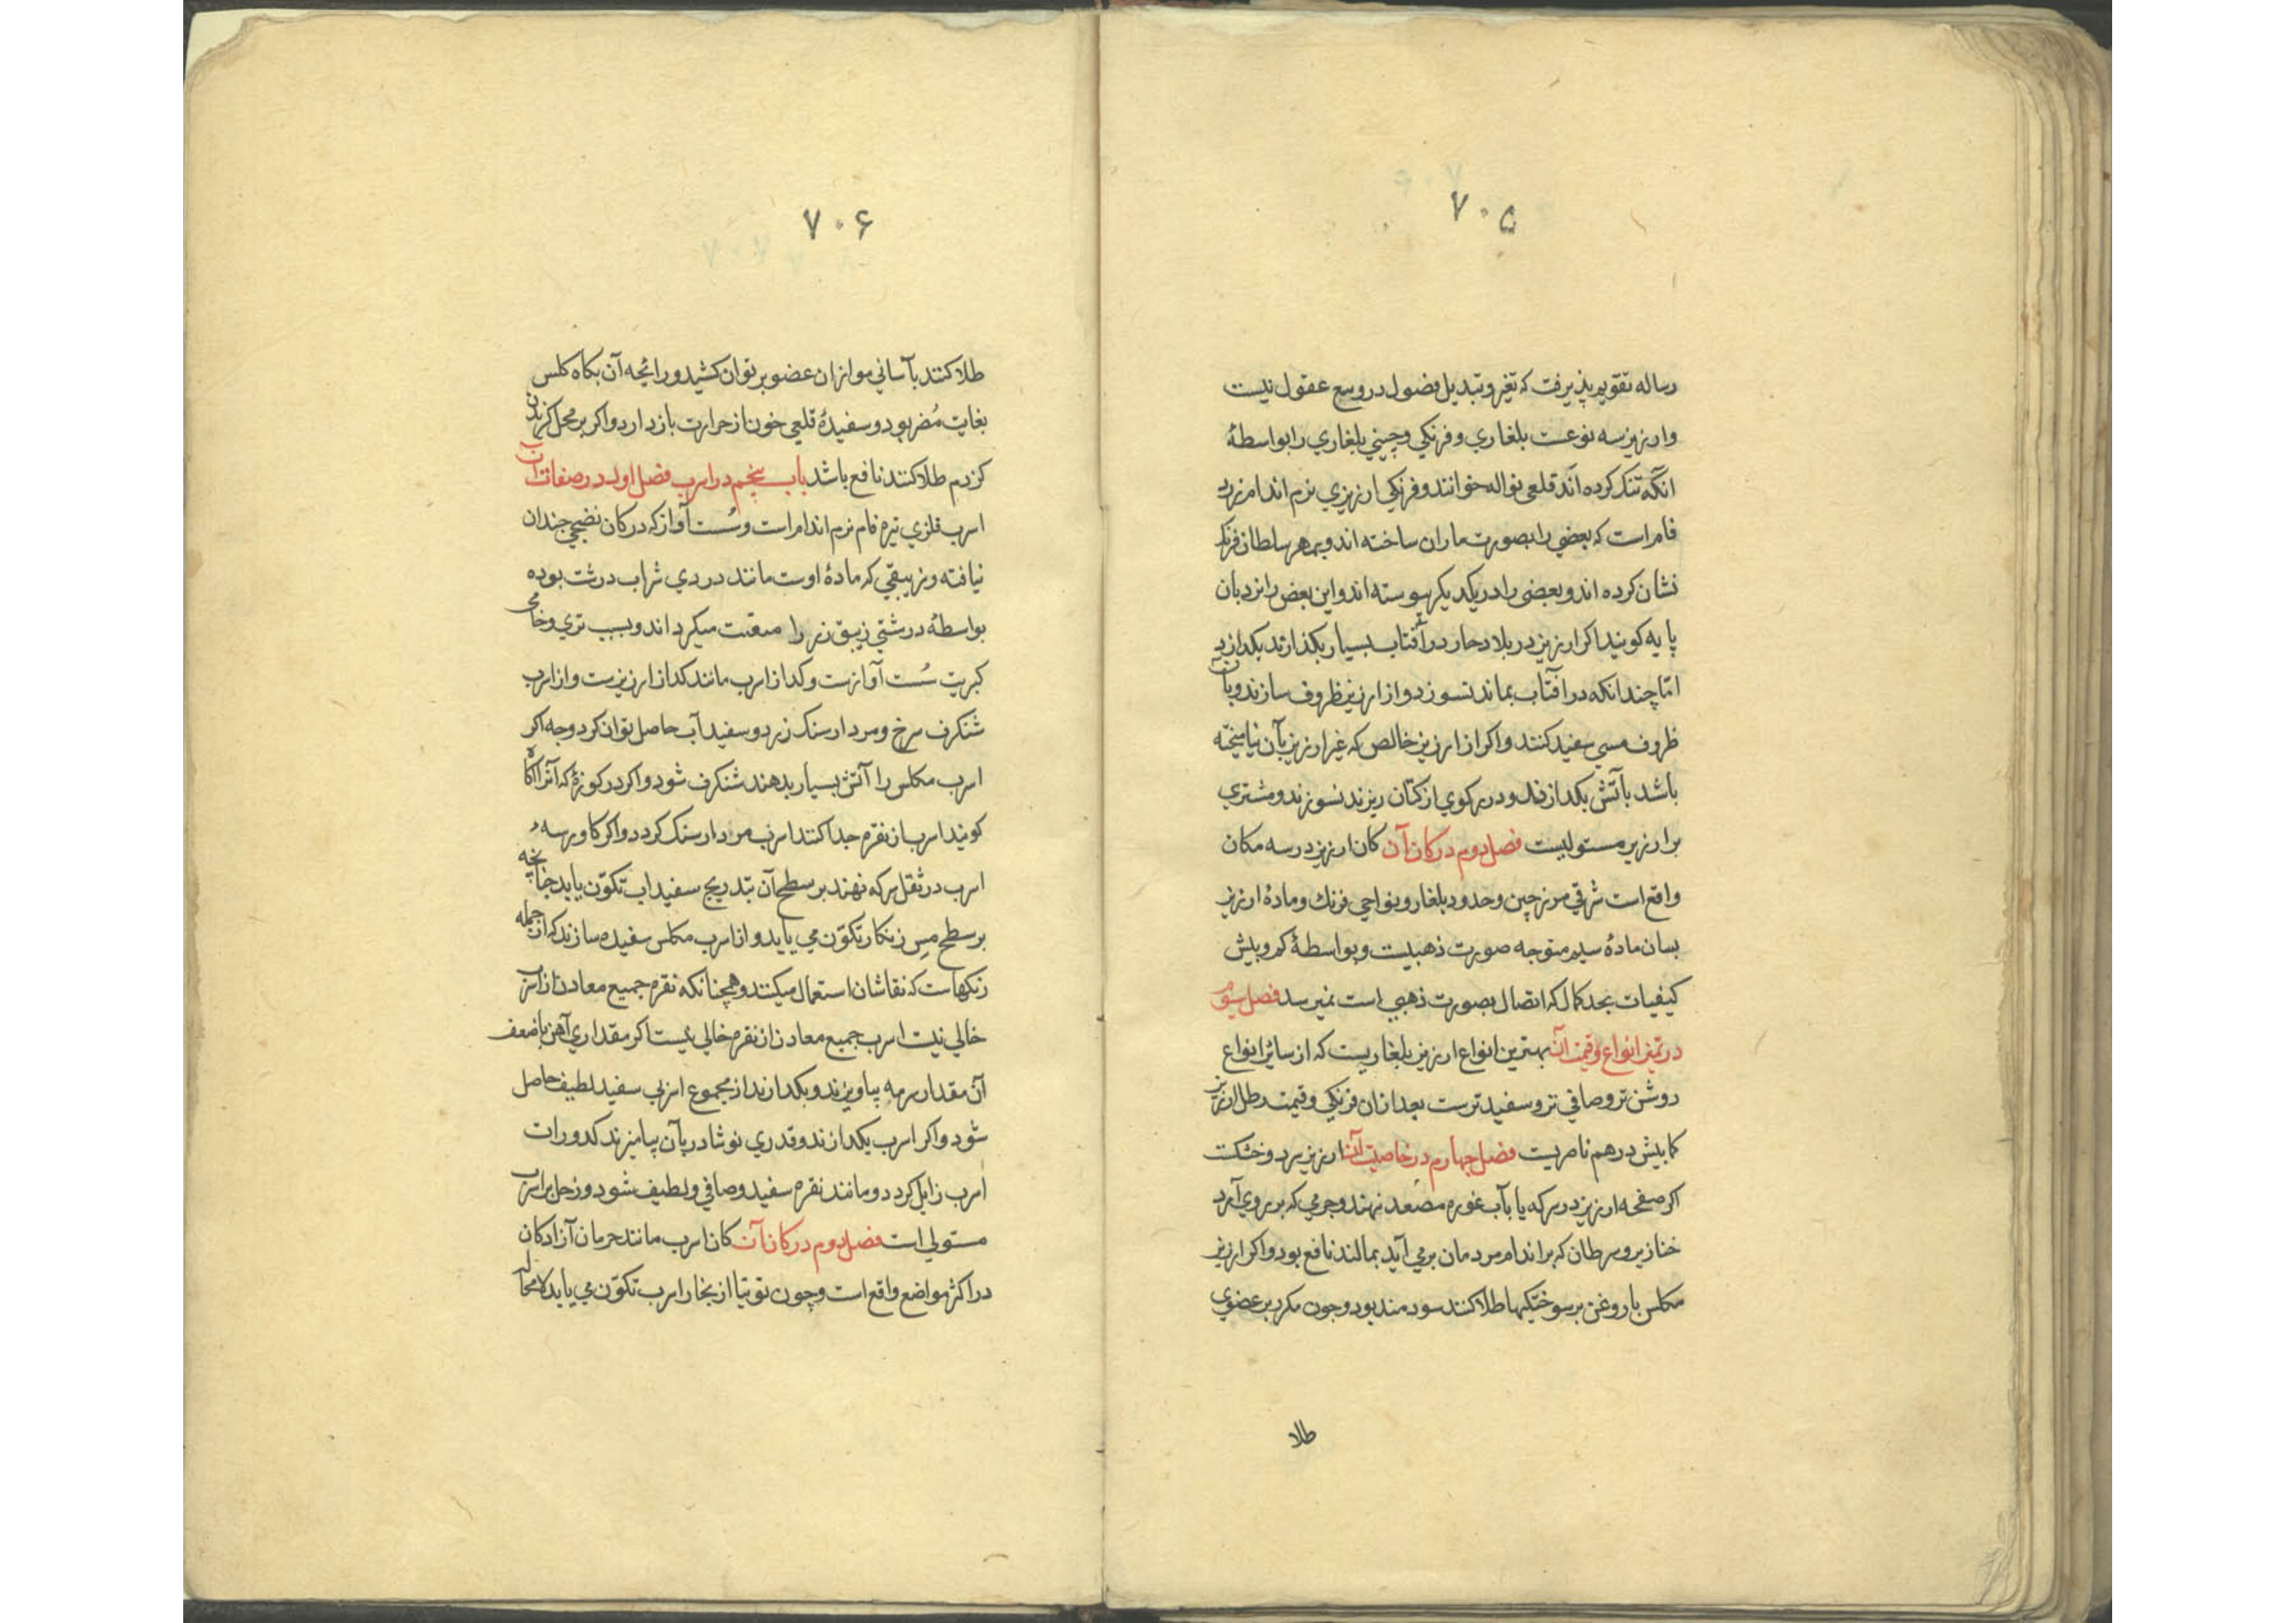 ۷۰۵
رساله تقویم پذیرفت که تغیر و تبدیل فضول در وسع عقول نیست
وارزیز سه نوعست بلغاري و فرنکي و چیني بلغاري را بواسطهٔ
انکه تنک کرده اند قلعي نواله خوانند و فرنکي ارزیزي نرم اندام زرد
فام است که بعضي را بصورت ماران ساخته اند و بمهر سلطان فرنک
نشان کرده اند و بعضی را در یکدیکر پیوسته اند و این بعض را نردبان
پایه کویند اکر ارزیز در بلاد حار در آفتاب بسیار بکذارند بکدازد
امّا چندانکه در آفتاب بماند نسوزد و از ارزیز ظروف سازند و بآن
ظروف مسي سفید کنند و اکر از ارزیز خالص که غیر ارزیز بآن نیامیخته
باشد بآتش بکدازند و در کوي از کتان ریزند نسوزند و مشتري
بر ارزیز مستولیست فصل دوم در کان آن کان ارزیز در سه مکان
واقع است شرقي مرز چین و حدود بلغار و نواحي فرنك و مادهٔ ارزیز
بسان مادهٔ سیم متوجه صورت ذهبیست و بواسطهٔ کم و بیش
کیفیات بحد کمال که اتصال بصورت ذهبي است نمیرسد فصل سوّم
در تمیز انواع و قیمت آن بهترین انواع ارزیز بلغاریست که از سائر انواع
روشن تر و صافي تر و سفیدترست بعد از ان فرنکي و قیمت رطل ارزیز
کمابیش درهم ناصریست فصل چهارم در خاصیت آن ارزیز سرد و خشکست
اکر صفحه ارزیز در سرکه یا بآب غوره مصعد نهند و جرمي که بر روي آرد
خنازیر و سرطان که بر اندام مردمان بر مي آید بمالند نافع بود و اکر ارزیز
مکلس با روغن بر سوختکیها طلا کنند سودمند بود و چون مکرر بر عضوي
طلا
۷۰۶
طلا کنند بآساني مو از ان عضو بر توان کشید و رائحه آن بکاه کلس
بغایت مُضر بود و سفیدهٔ قلعي خون از حرارت باز دارد و اکر بر محل کزیدن
کزدم طلا کنند نافع باشد باب پنجم در اسرب فصل اول در صفات آن
اسرب فلزي تیره فام نرم اندام است و سُست آواز که در کان نضجي چندان
نیافته و زیبقي که مادهٔ اوست مانند دردي شراب درشت بوده
بواسطهٔ درشتي زیبق زر را میکرداند و بسبب تري و خامي
کبریت سُست آوازست و کداز اسرب مانند کداز ارزیزست و از اسرب
شنکرف سرخ و مردارسنک زرد و سفیدآب حاصل توان کرد و چه اکر
اسرب مکلس را آتش بسیار بدهند شنکرف شود و اکر در کوزهٔ که آنرا کاه
کویند اسرب از نقره جدا کنند اسرب مردارسنک کردد و اکر کاورسهٔ
اسرب در ثفل سرکه نهند بر سطح آن بتدریج سفیداب تکوّن یابد چنانچه
بر سطح مس زنکار تکوّن مي یابد و از اسرب مکلس سفیده سازند که از جمله
رنکهاست که نقاشان استعمال میکنند و همچنانکه نقره جمیع معادن از اسرب
خالي نیست اسرب جمیع معادن از نقره خالي نیست اکر مقداري آهن با ضعف
آن مقدار سرمه بیامیزند و بکدازند از مجموع اسربي سفید لطیف حاصل
شود و اکر اسرب بکدازند و قدري نوشادر بآن بیامیزند کدورات
اسرب زایل کردد و مانند نقره سفید و صافي و لطیف شود و زحل بر اسرب
مستولي است فصل دوم در کان آن کان اسرب مانند حرمان آزادکان
در اکثر مواضع واقع است و چون توتیا از بخار اسرب تکوّن مي یابد لا محال